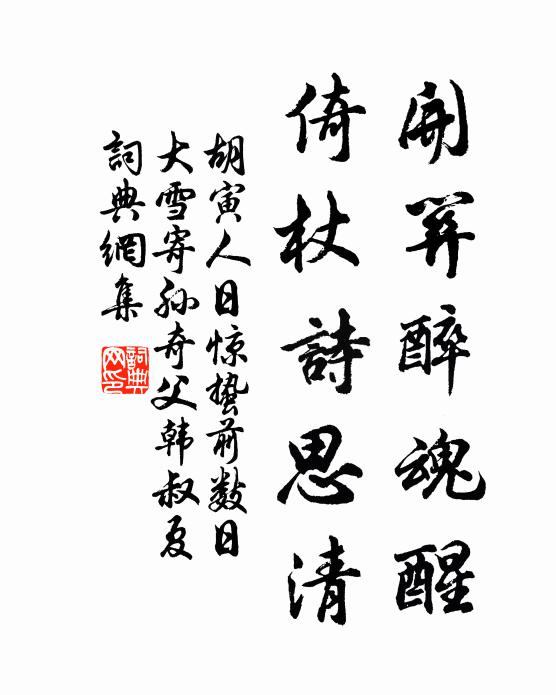 開笄醉魂醒
倚杖詩思清
胡寅人日惊蛰前数日
大雪寄孙奇父韩叔夏
詞典網集
詞典网印